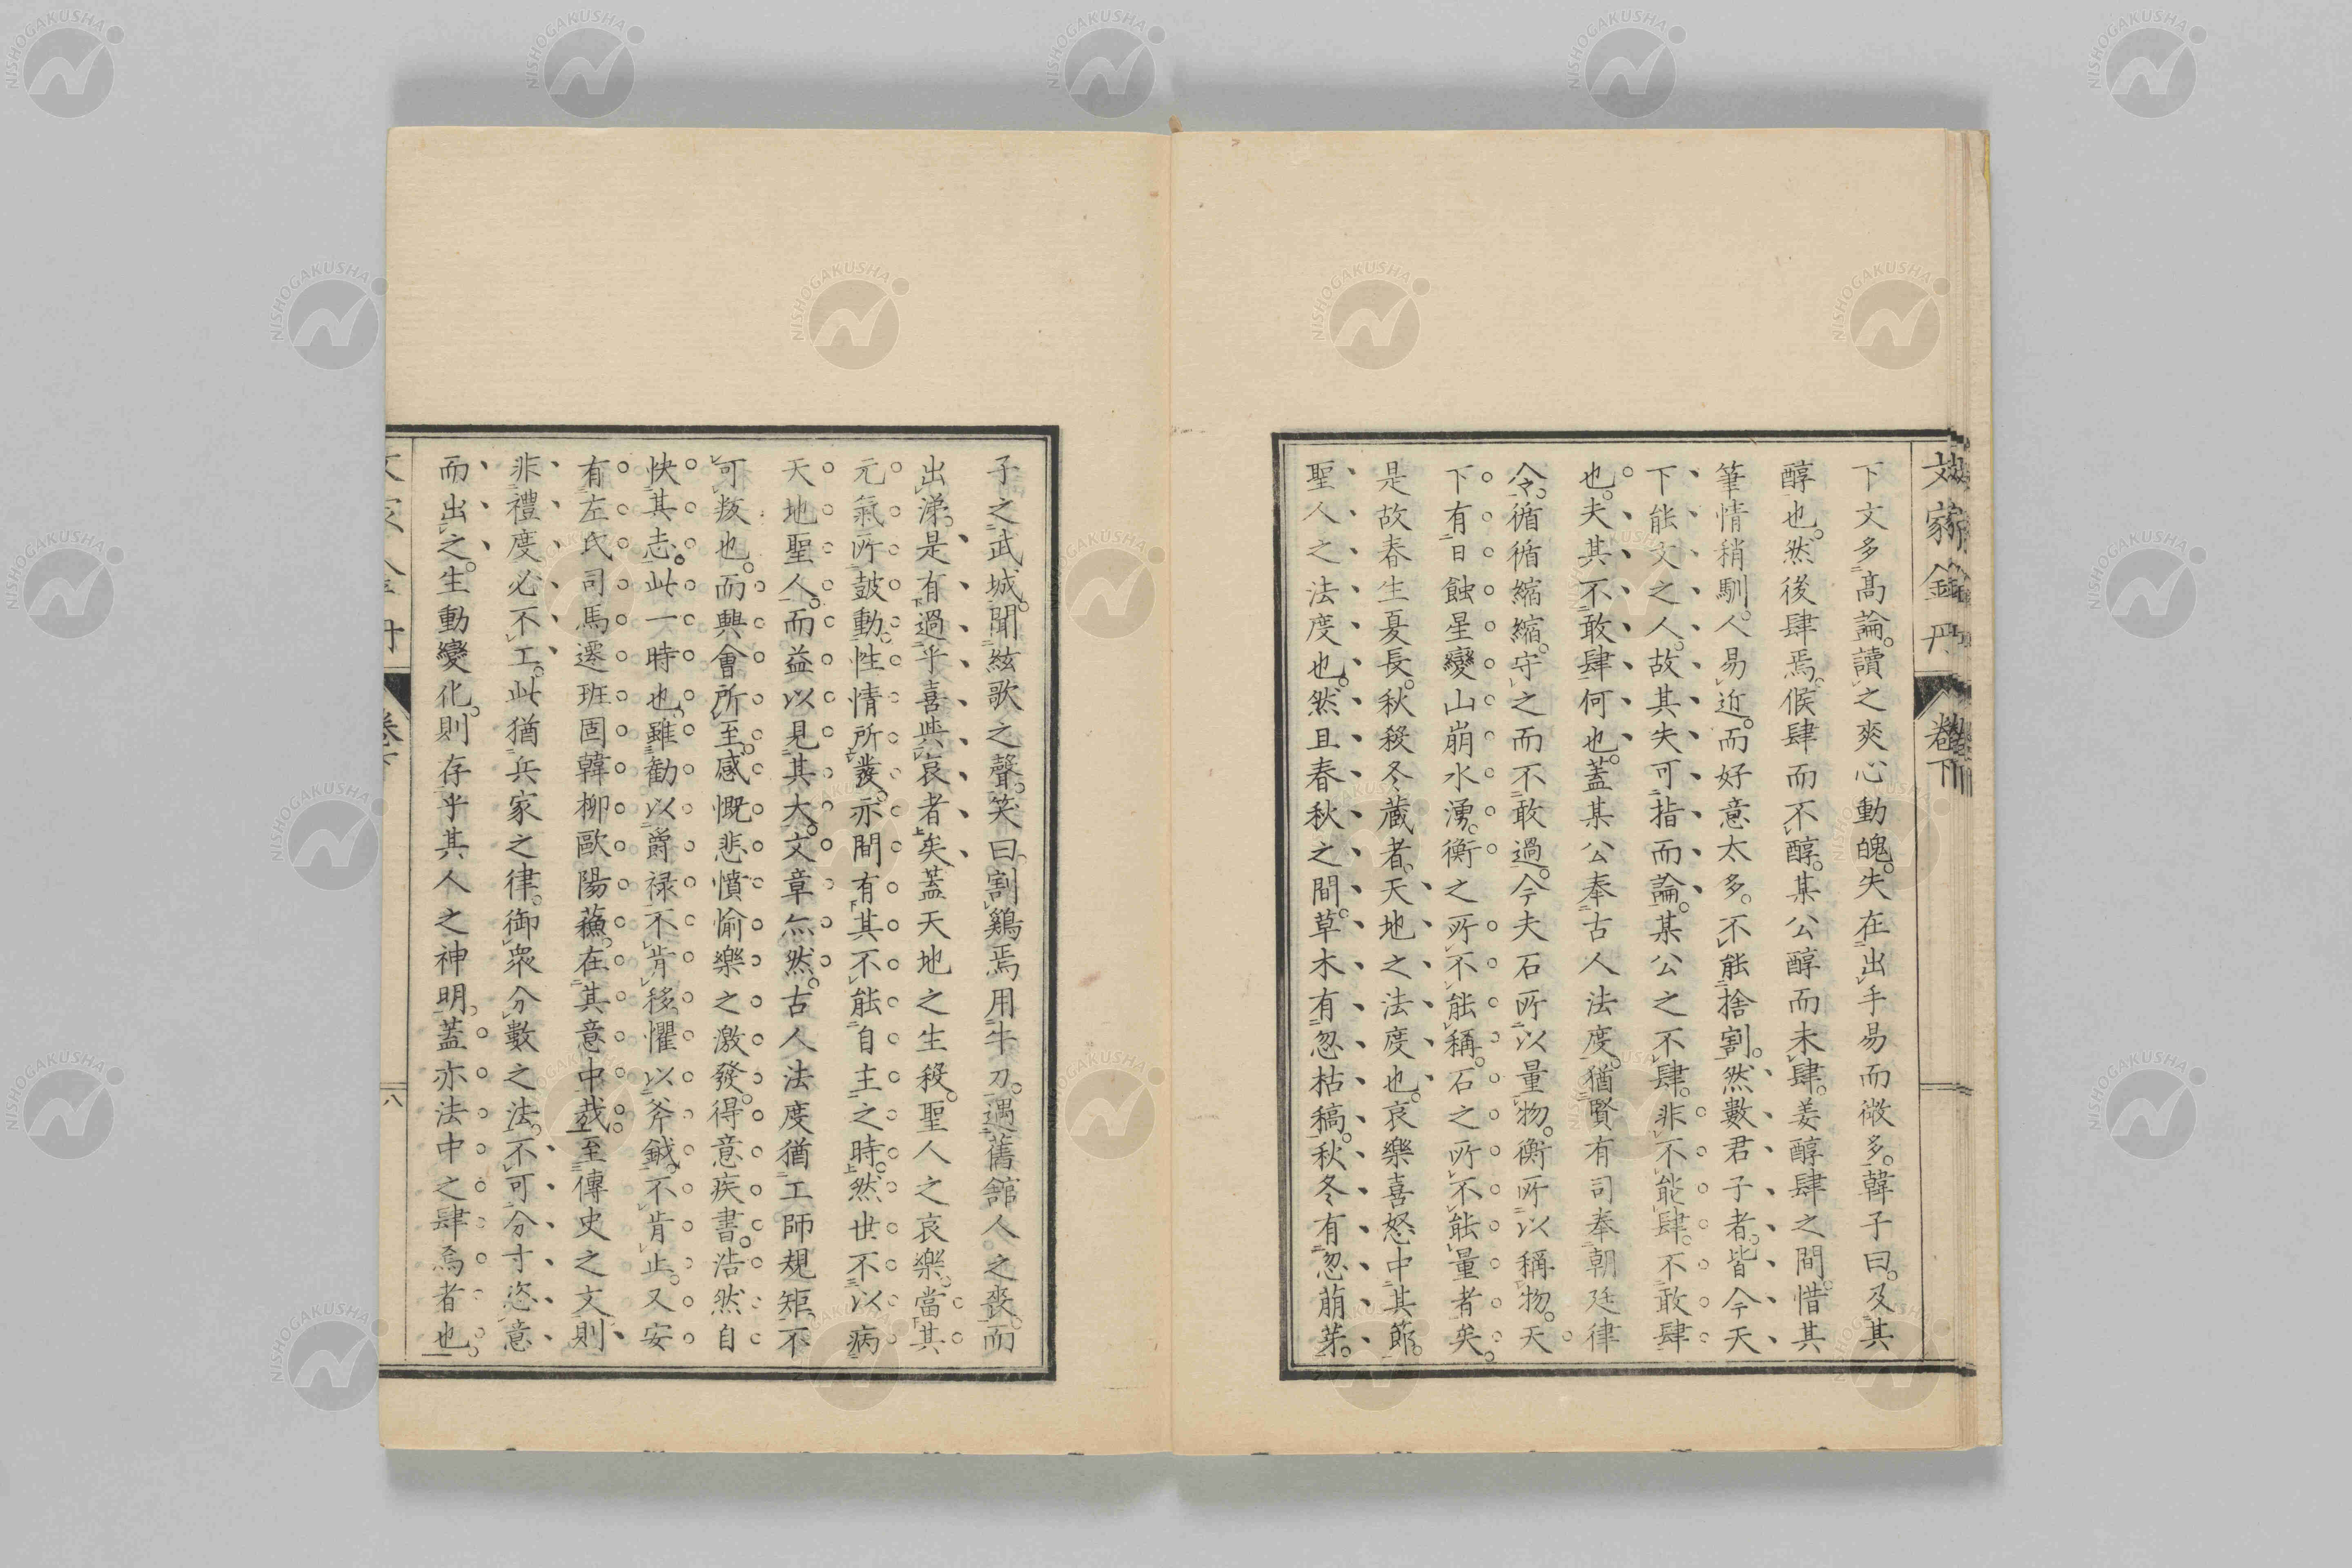 文家金丹
卷下
下文多高論。讀之爽心動魄。失在出手易而微多。韓子曰。及其
醇也。然後肆焉。侯肆而不醇。某公醇而未肆。姜醇肆之間。惜其
筆情稍馴。人易近。而好意太多。不能捨割。然數君子者。皆今天
下能文之人。故其失可指而論。某公之不肆。非不能肆。不敢肆
也。夫其不敢肆何也。蓋某公奉古人法度。猶賢有司奉朝廷律
令。循循縮縮。守之而不敢過。今夫石所以量物。衡所以稱物。天
下有日蝕星變山崩水湧。衡之所不能稱。石之所不能量者矣。
是故春生夏長。秋殺冬藏者。天地之法度也。哀樂喜怒中其節。
聖人之法度也。然且春秋之間。草木有忽枯稿。秋冬有忽萠芽。
子之武城。聞絃歌之聲。笑曰。割鷄焉用牛刀。遇舊舘人之喪。而
出涕。是有過乎喜與哀者矣。蓋天地之生殺。聖人之哀樂。當其
元氣所鼓動。性情所發。亦間有其不能自主之時。然世不以病
天地聖人。而益以見其大。文章亦然。古人法度猶工師規矩。不
可叛也。而興會所至。感慨悲憤愉樂之激發。得意疾書。浩然自
快其志。此一時也。雖勸以爵禄不肯移。懼以斧鉞。不肯止。又安
有左氏司馬遷班固韓柳歐陽蘇。在其意中哉。至傳史之文。則
非禮度必不工。此猶兵家之律。御衆分數之法。不可分寸恣意
而出之。生動變化。則存乎其人之神明。蓋亦法中之肆焉者也。
六